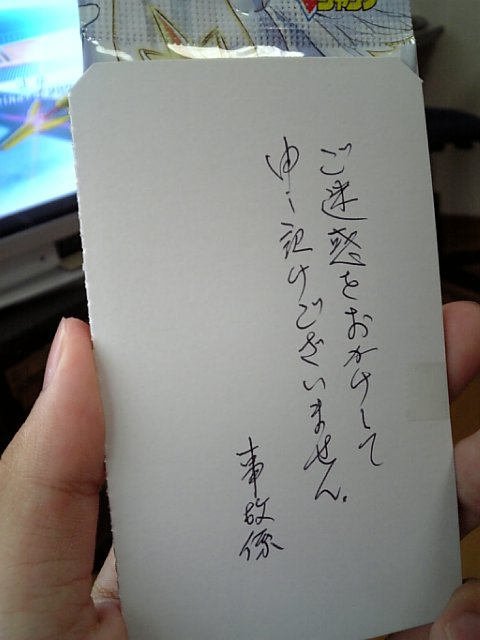 ご迷惑をおかけして
申し訳けございません。
事故係
ジャンプ